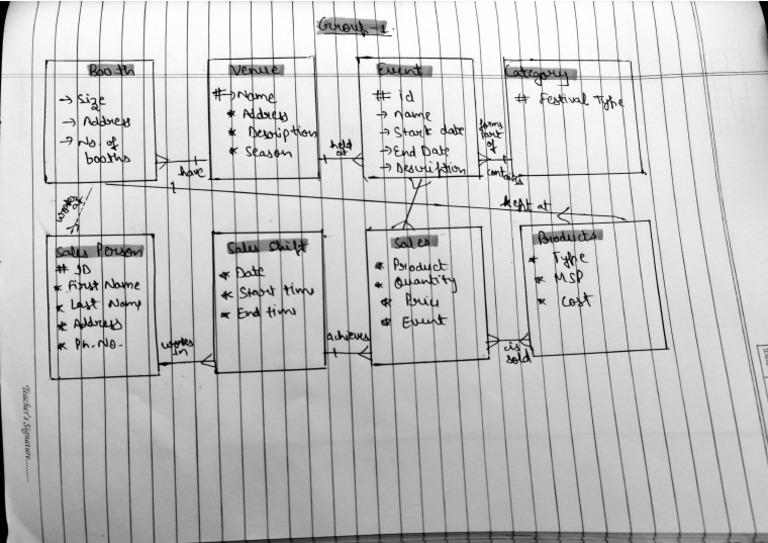 Group-1.
Booth
→ Size
→ Address
→ No. of
booths
have
Venue
# → Name
* Address
* Description
* Season
held
at
Event
# id
→ name
→ Start date
→ End Date
→ Description
forms
part
of
contains
Category
# Festival Type
works
at
kept at
Sales Person
# ID
* First Name
* Last Name
* Address
* Ph. No.
works
in
Sales Shift
* Date
* Start time
* End time
achieves
Sales
* Product
* Quantity
* Price
* Event
is
sold
Products
* Type
* MSP
* Cost
Teacher's Signature........